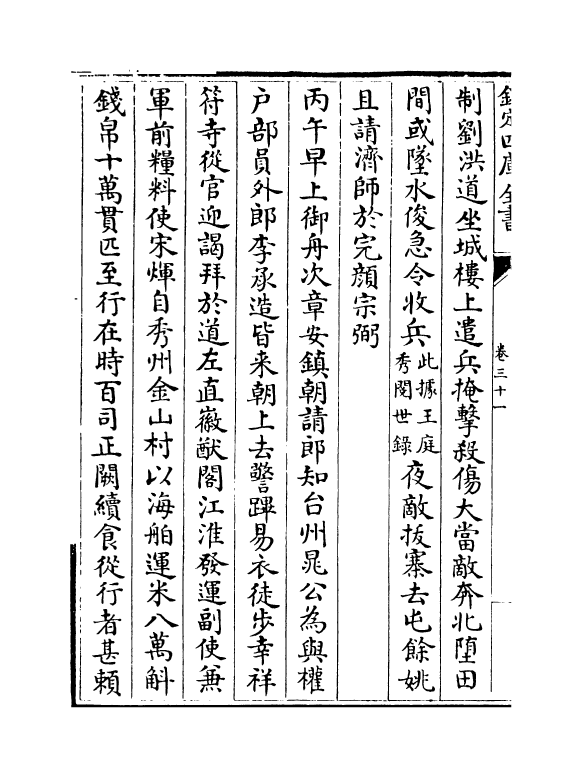 欽定四庫全書
卷三十一
制劉洪道坐城樓上遣兵掩擊殺傷大當敵奔北墮田
間或墜水俊急令收兵此據王庭秀閱世錄夜敵拔寨去屯餘姚
且請濟師於完顔宗弼
丙午早上御舟次章安鎮朝請郎知台州晁公為與權
户部員外郎李承造皆来朝上去警蹕易衣徒步幸祥
符寺從官迎謁拜於道左直徽猷閣江淮發運副使兼
軍前糧料使宋煇自秀州金山村以海舶運米八萬斛
錢帛十萬貫匹至行在時百司正闕續食從行者甚賴